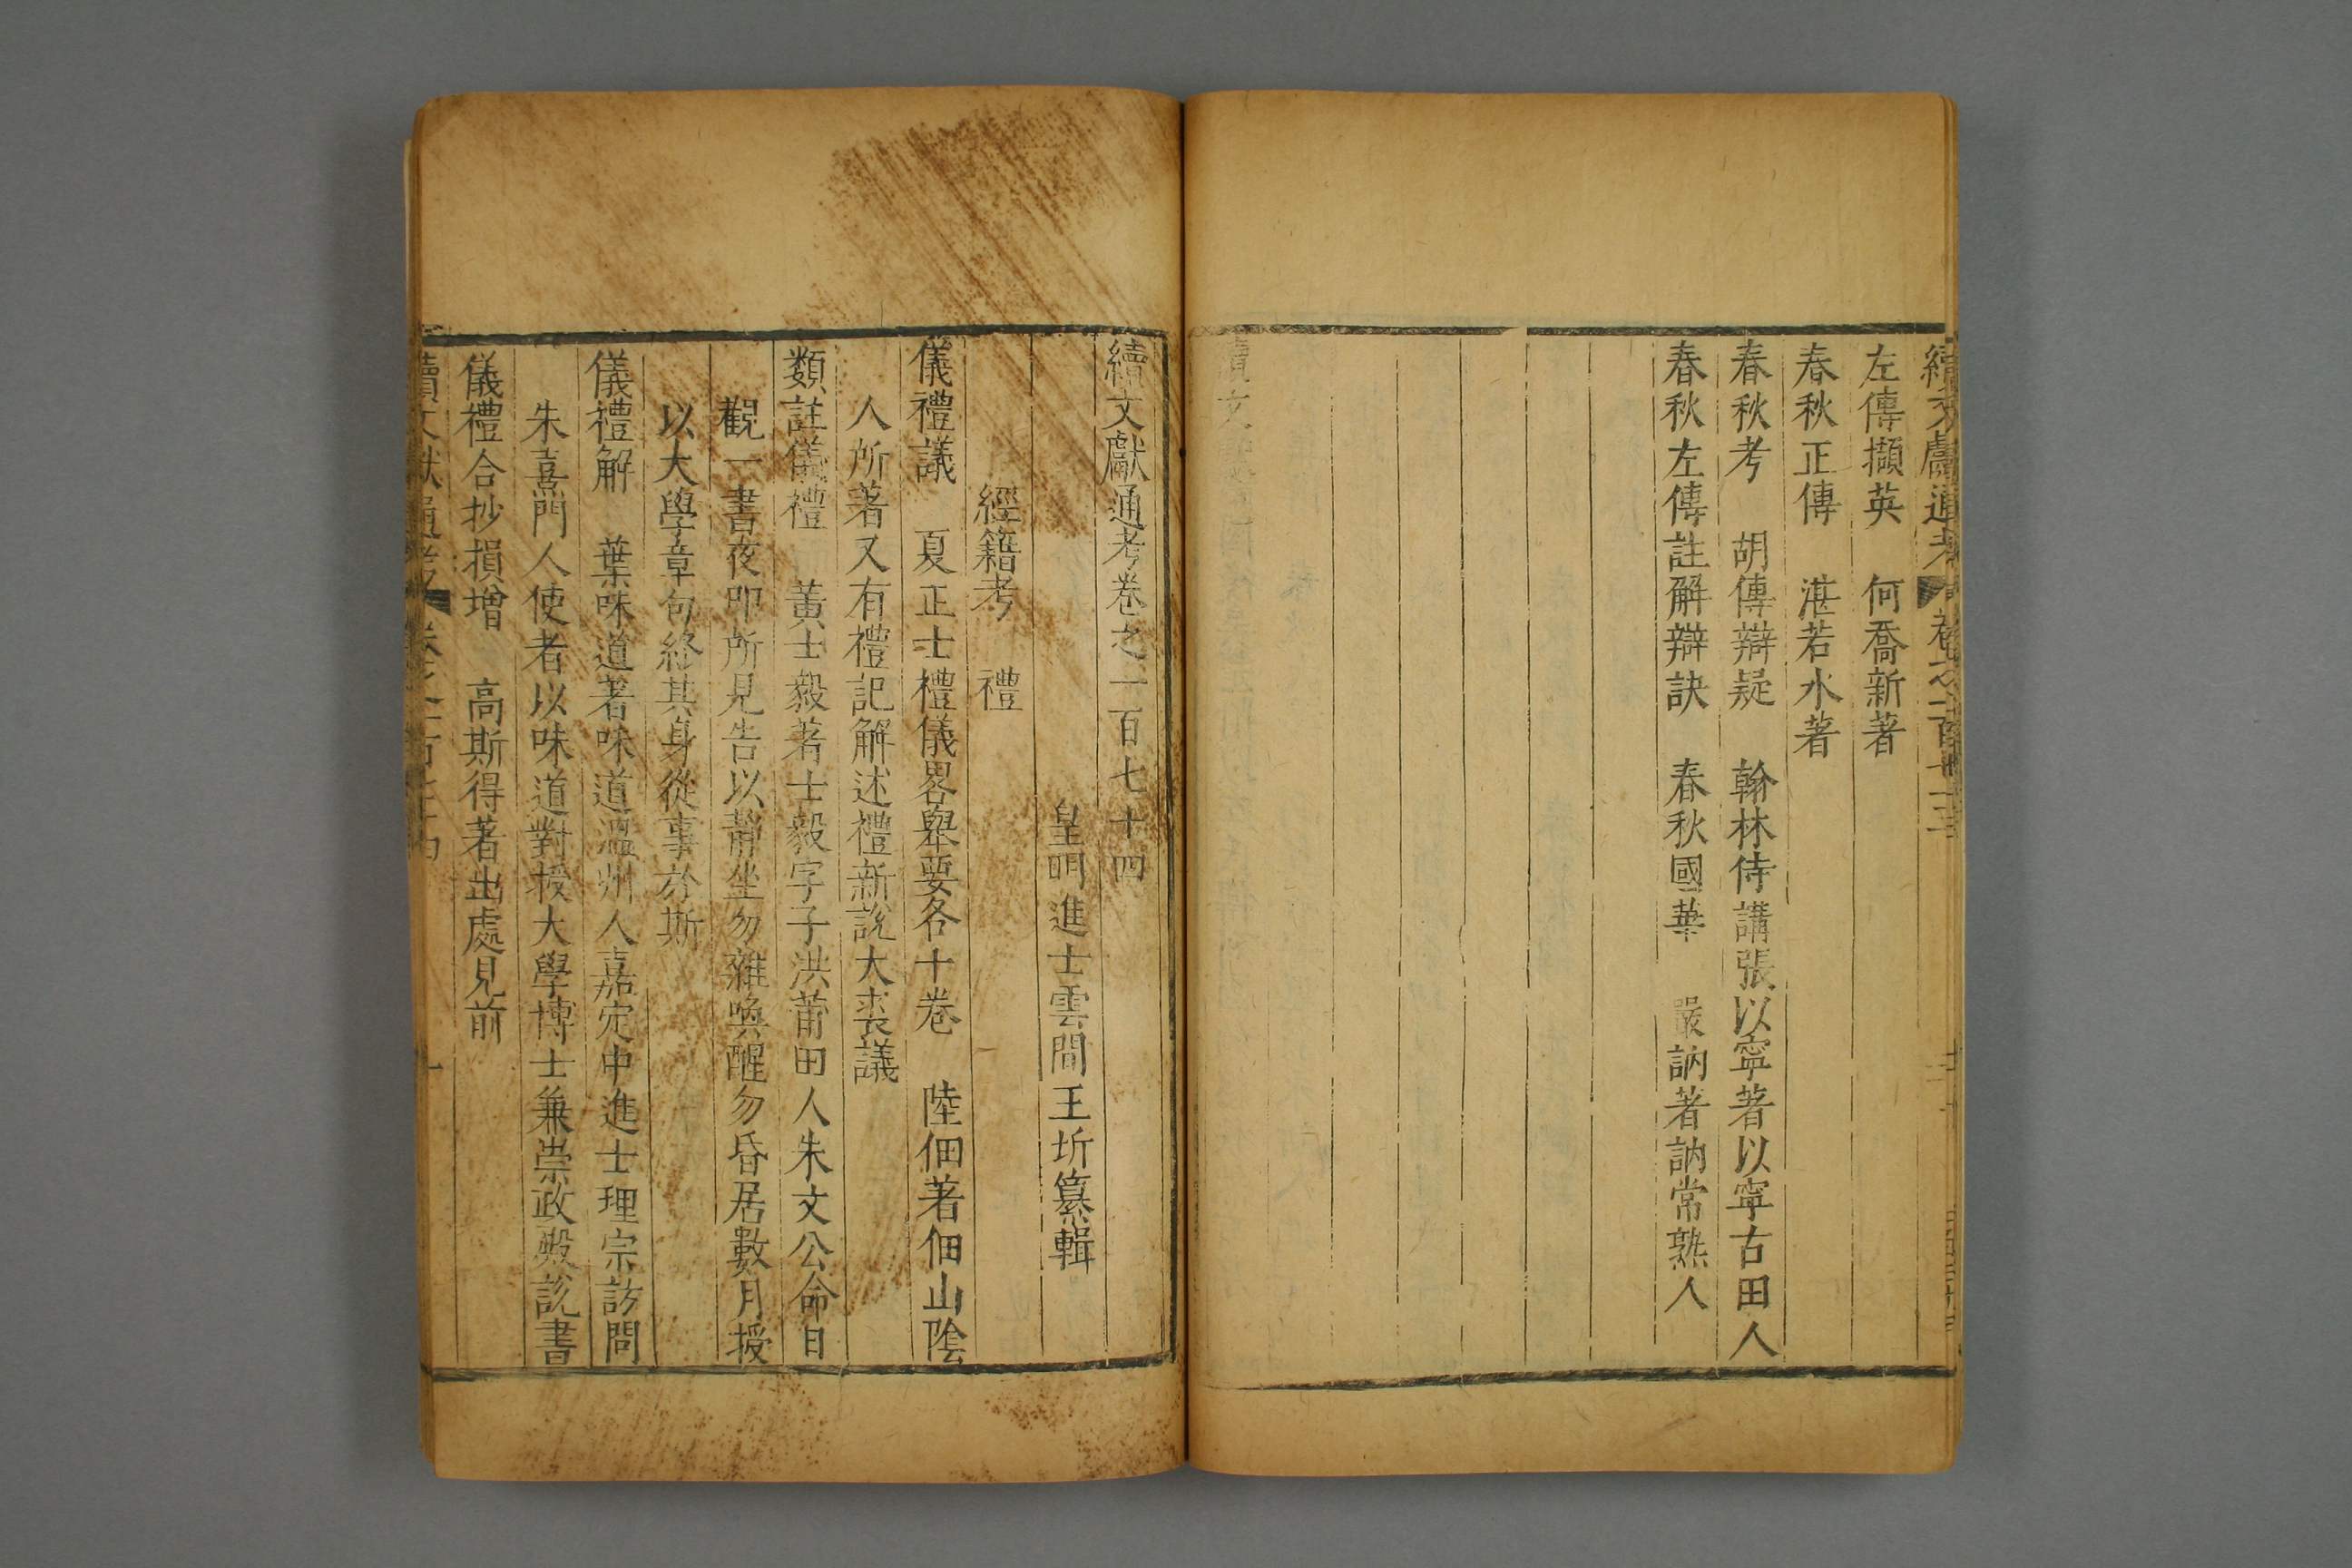 續文獻通考 卷之一百七十三
左傳擷英 何喬新著
春秋正傳 湛若水著
春秋考 胡傳辯疑 翰林侍講張以寧著以寧古田人
春秋左傳註解辯訣 春秋國華 嚴訥著訥常熟人
續文獻通考卷之一百七十四
皇明進士雲間王圻纂輯
經籍考 禮
儀禮議 夏正士禮儀畧舉要各十卷 陸佃著佃山隂
人所著又有禮記解述禮新說大裘議
類註儀禮 黃士毅著士毅字子洪莆田人朱文公命日
觀一書夜叩所見告以靜坐勿雜喚醒勿昏居數月授
以大學章句終其身從事於斯
儀禮解 葉味道著味道溫州人嘉定中進士理宗訪問
朱熹門人使者以味道對授大學博士兼崇政殿說書
儀禮合抄損增 高斯得著出處見前
續文獻通考 卷之一百七十四 一